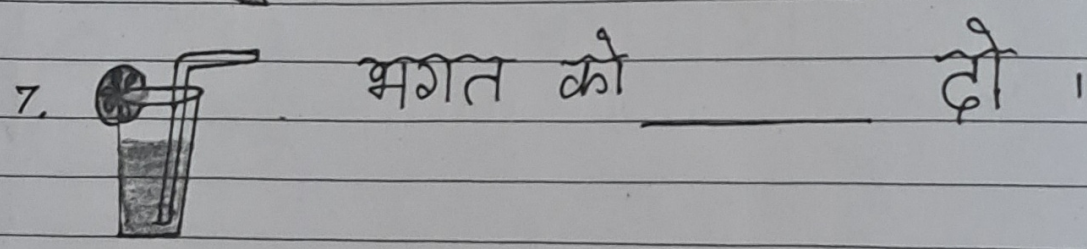 7. भगत को ________ दो ।